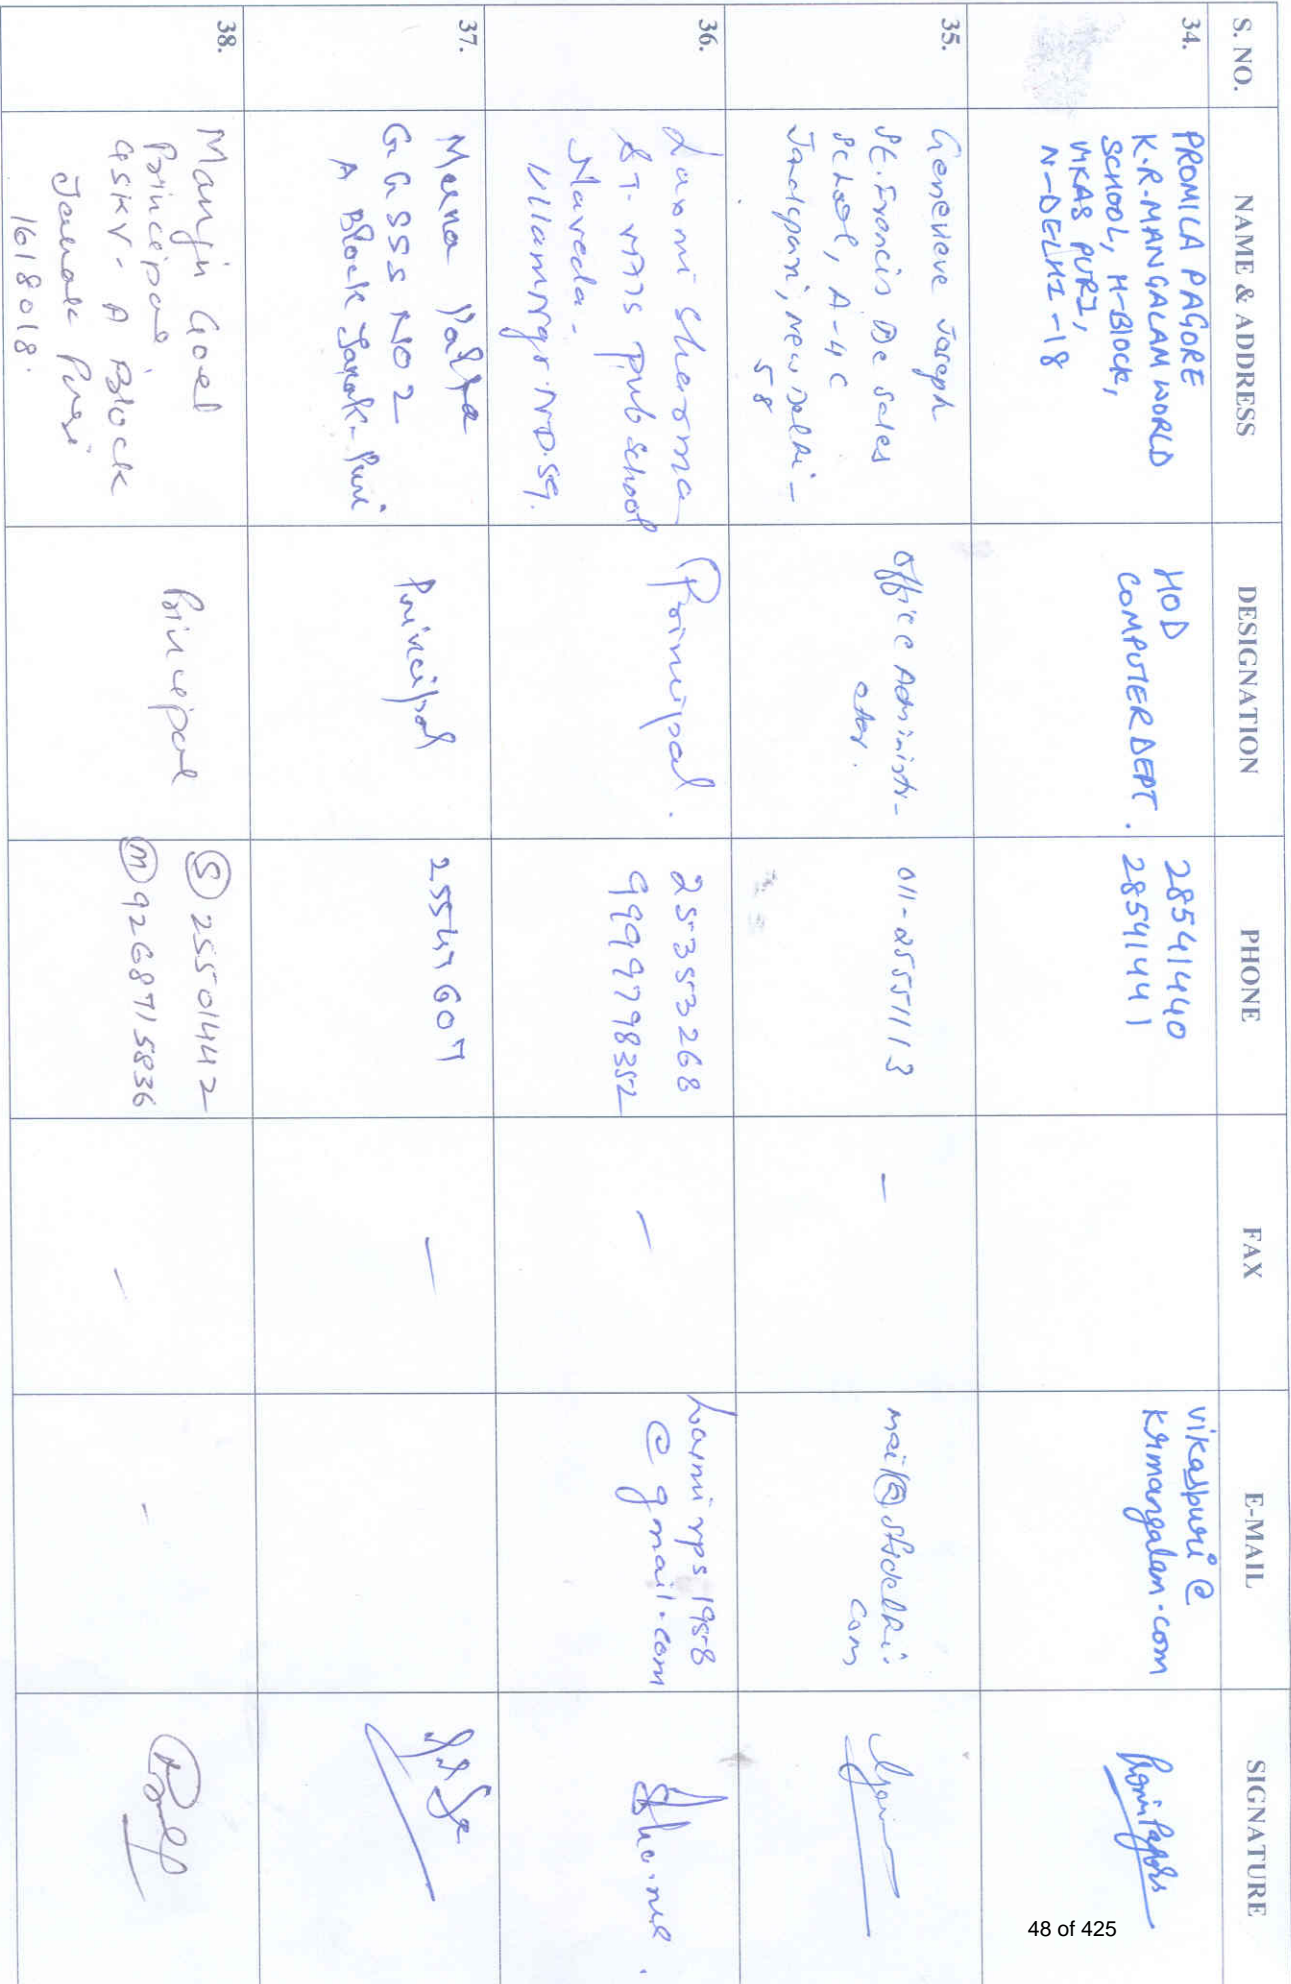 S. NO. NAME & ADDRESS DESIGNATION PHONE FAX E-MAIL SIGNATURE
34.
PROMILA PAGORE
K.R. MANGALAM WORLD
SCHOOL, H-BLOCK,
VIKAS PURI,
N-DELHI-18
HOD
COMPUTER DEPT.
28541440
28541441
vikaspuri@
krmangalam.com
35.
Genevieve Joseph
St. Francis De Sales
School, A-4 C
Janakpuri, New Delhi-
58
Office Administr-
ator.
011-25551113
-
mail@sfsdelhi.
com
36.
Laxmi Sharma
Pub School
Naveda-
ND.59.
Principal.
25353268
9999798352
-
@gmail.com
37.
Meena
GGSSS NO 2
A Block Janak-Puri
Principal
25547607
-
38.
Manju Goel
Principal
GSKV- A Block
Janak Puri
1618018.
Principal
(S) 25501442
(M) 9268715836
-
-
48 of 425